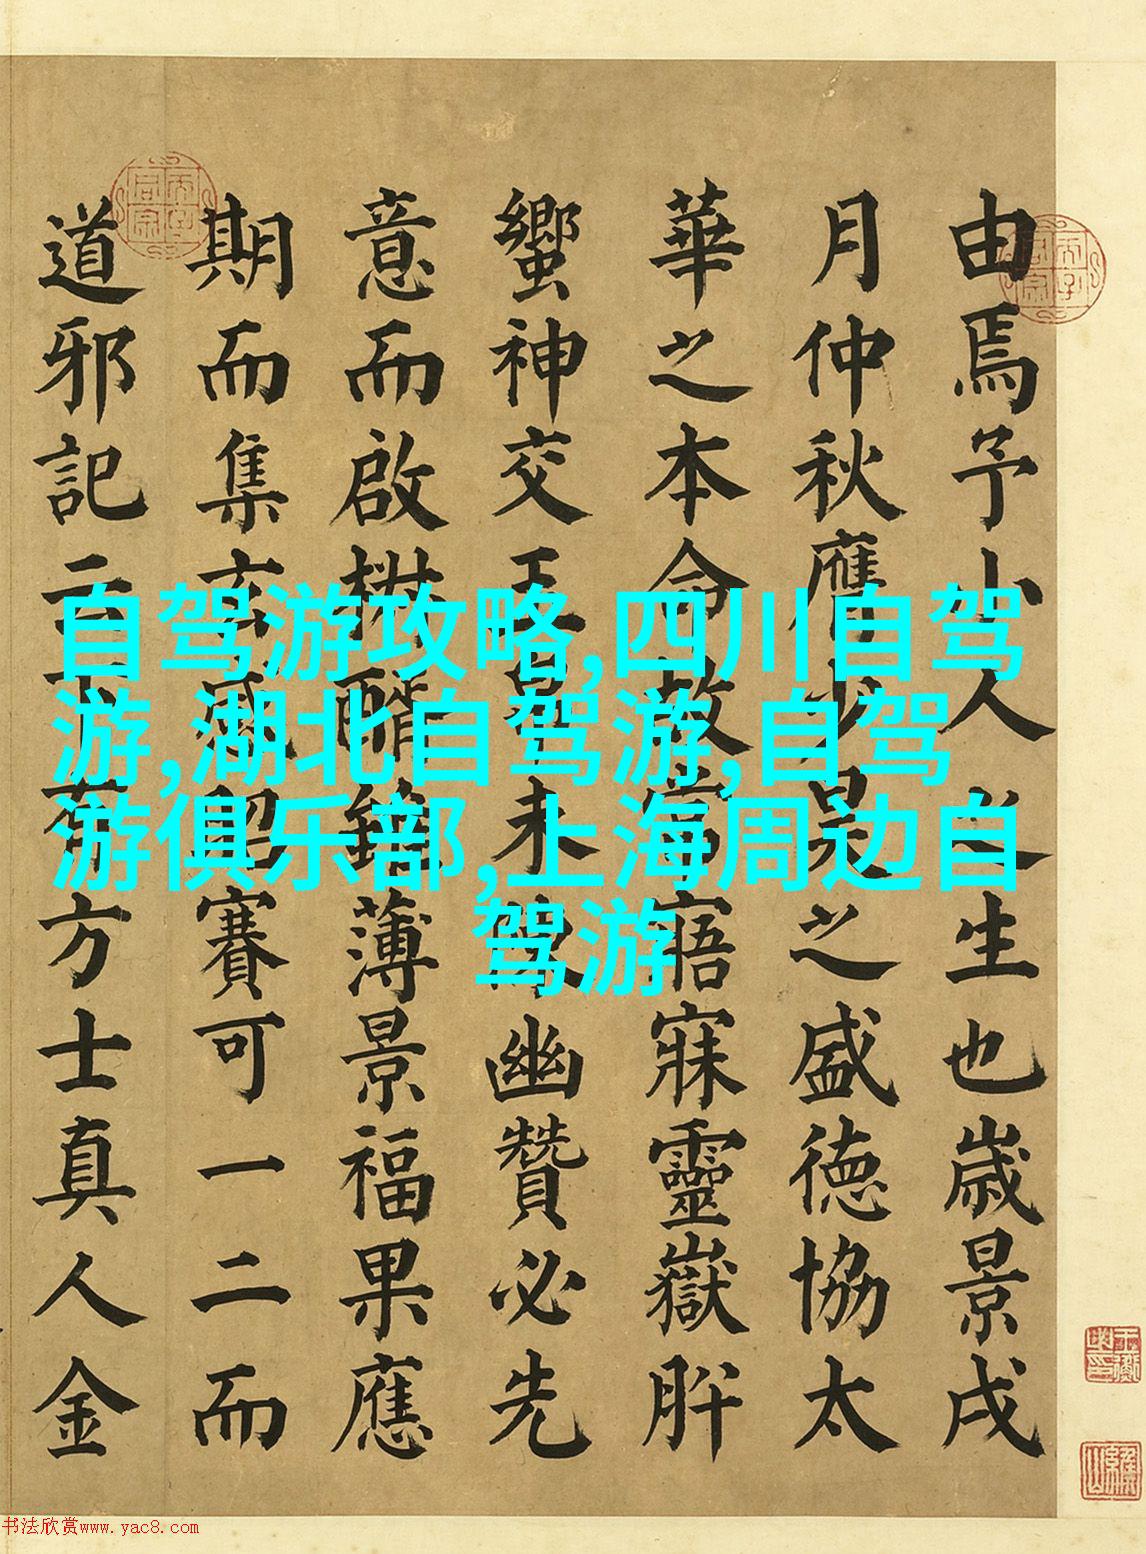 由焉予小人之生也歲景戌
月仲秋應少昊之盛德協太
華之本命故寤寐靈嶽肸
蠁神交玉未幽贊必先
意而啟醮薄景福果應
期而集玄感賽可一二而
道邪記二十有方士真人金
自驾游攻略,四川自驾
游,湖北自驾游,自驾
游俱乐部,上海周边自
驾游
书法欣赏www.yac8.com